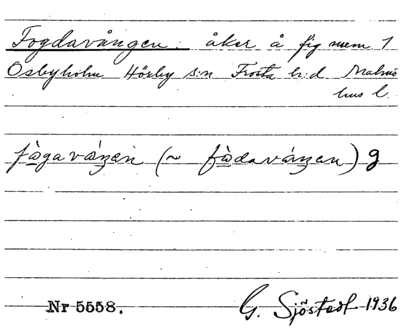 Fogdavången. åker å fig num 1
Osbyholm Hörby s:n Frosta h:d Malmö
hus l.
fògavàŋen (~ fòdavàŋen) g
Nr 5558. G. Sjöstedt 1936